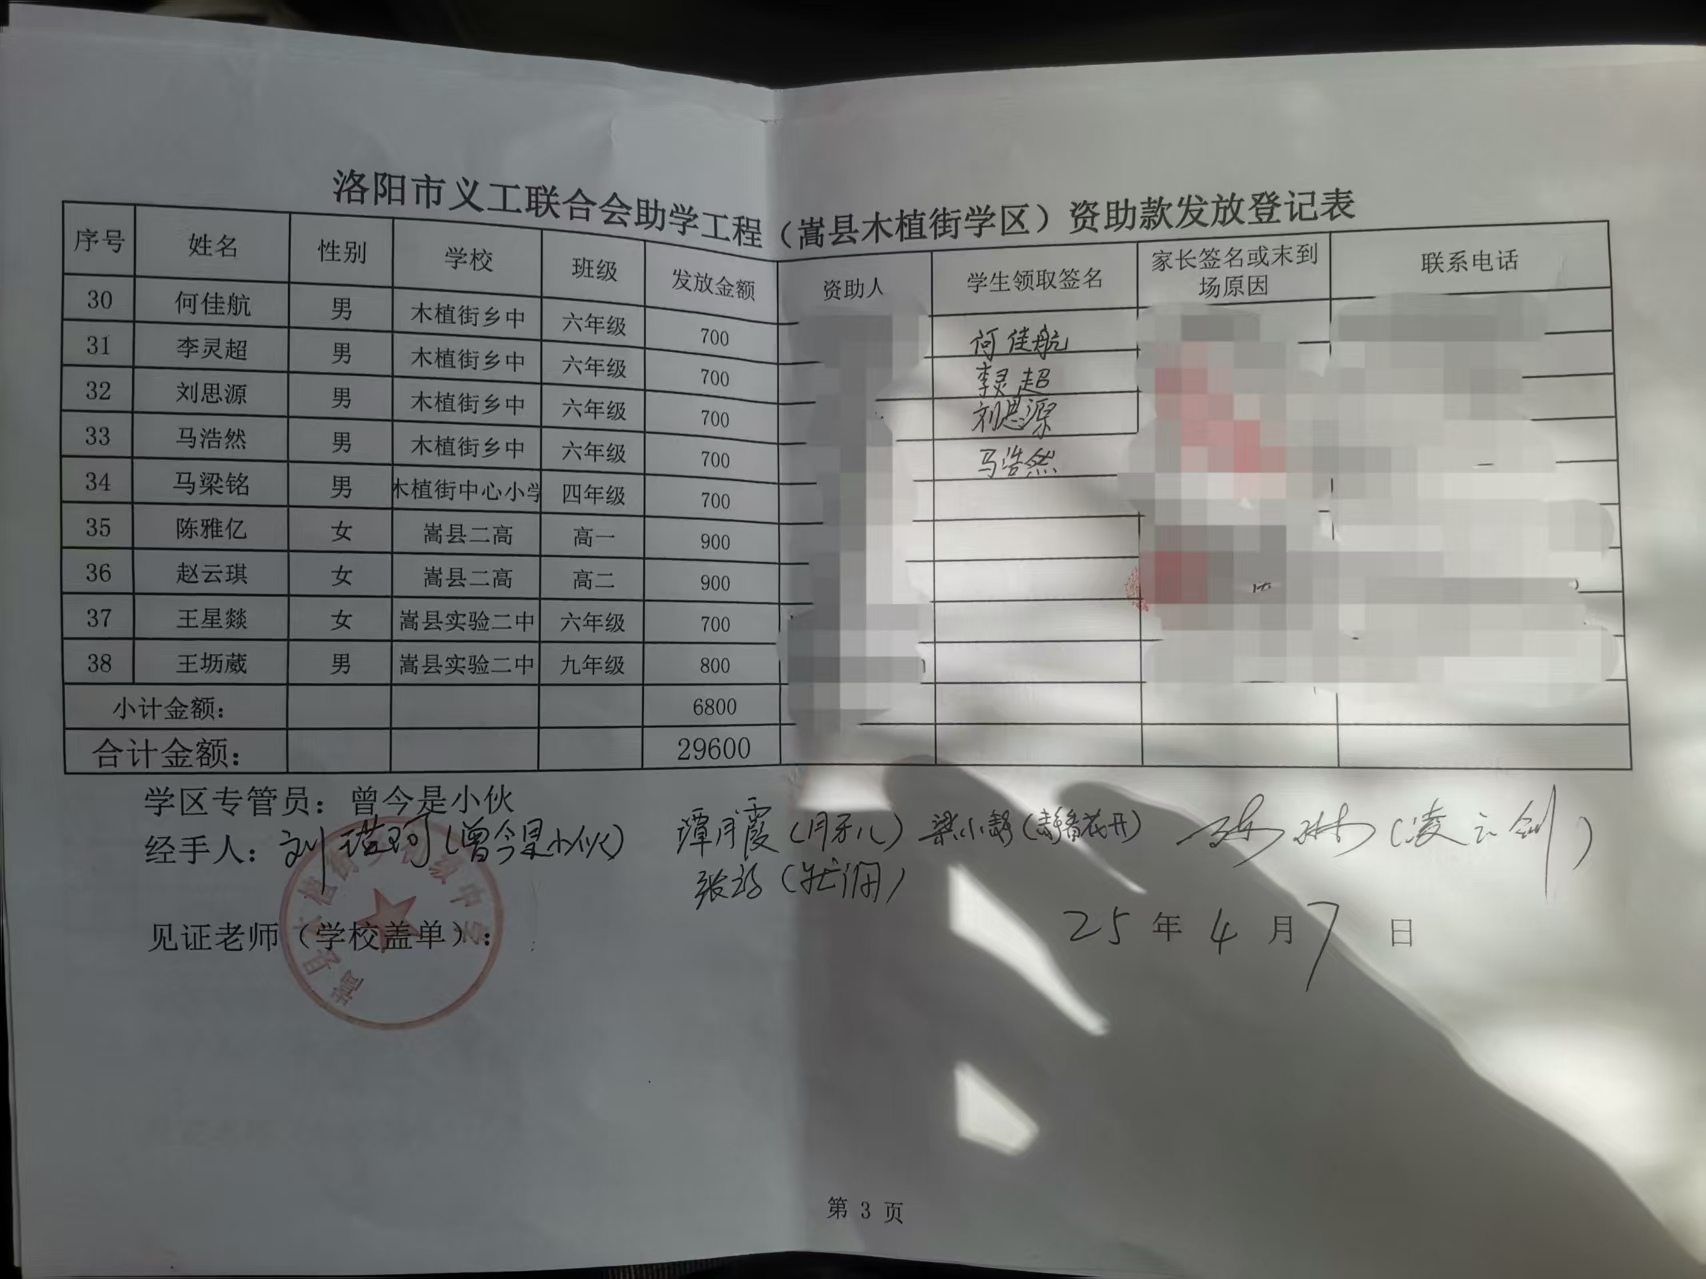 洛阳市义工联合会助学工程（嵩县木植街学区）资助款发放登记表
序号 姓名 性别 学校 班级 发放金额 资助人 学生领取签名 家长签名或未到场原因 联系电话
30 何佳航 男 木植街乡中 六年级 700 何佳航
31 李灵超 男 木植街乡中 六年级 700 李灵超
32 刘思源 男 木植街乡中 六年级 700 刘思源
33 马浩然 男 木植街乡中 六年级 700 马浩然
34 马梁铭 男 木植街中心小学 四年级 700
35 陈雅亿 女 嵩县二高 高一 900
36 赵云琪 女 嵩县二高 高二 900
37 王星燚 女 嵩县实验二中 六年级 700
38 王坜葳 男 嵩县实验二中 九年级 800
小计金额： 6800
合计金额： 29600
学区专管员：曾今是小伙
经手人：刘 (曾今是小伙) 谭月霞(月牙儿) 梁小 (静看花开) (凌云剑)
张
25年4月7日
见证老师（学校盖单）：
第 3 页